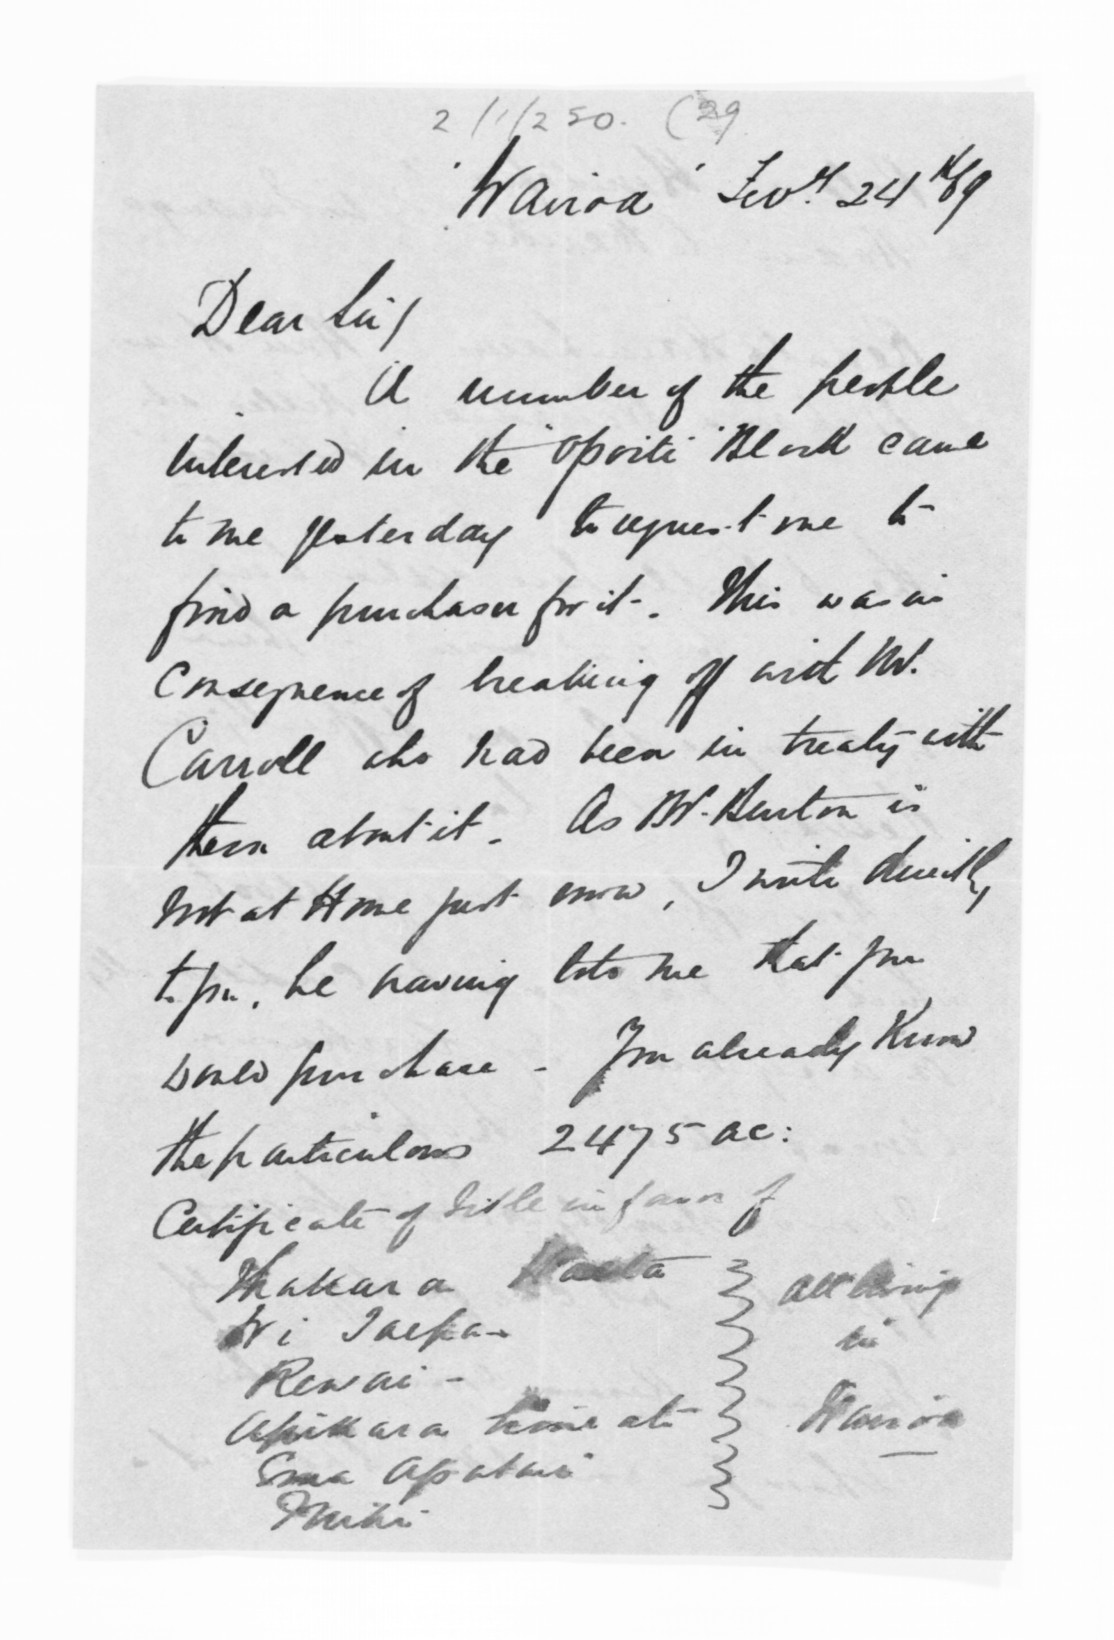 2/1/250. (29)
"Wairoa" Feby. 24th/69
Dear Sir/
A number of the people
interested in the "Opoiti" Block came
to me yesterday to request me to
find a purchaser for it. This was in
consequence of breaking off with Mr.
Carroll who had been in treaty with
them about it. As Mr. Burton is
not at Home just now, I write directly
to you, he having told me that you
would purchase - You already Know
the particulars 2475 ac:
Certificate of Title in favor of
all living
Wi
in
Rewai -
Wairoa
Ema Apatari